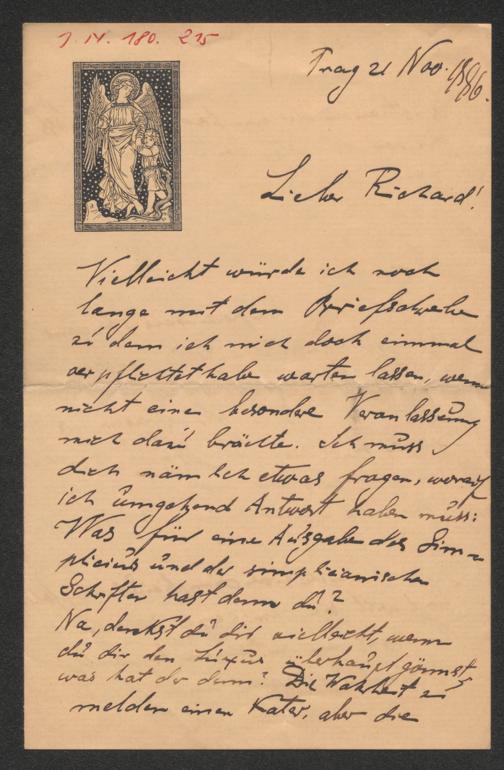 J. N. 180. 215
Prag 21 Nov. 1886.
Lieber Richard!
Vielleicht würde ich noch
lange mit dem Briefschreiben
zu dem ich mich doch einmal
verpflichtet habe warten lassen, wenn
nicht eine besondere Veranlassung
mich dazu brächte. Ich muss
dich nämlich etwas fragen, worauf
ich umgehend Antwort haben muss:
Was für eine Ausgabe des Sim=
plicius und der simplicianischen
Schriften hast denn du?
Na, denkst du dir vielleicht, wenn
du dir den Luxus überhaupt gönnst,
was hat der denn? Die Wahrheit zu
melden einen Kater, aber die